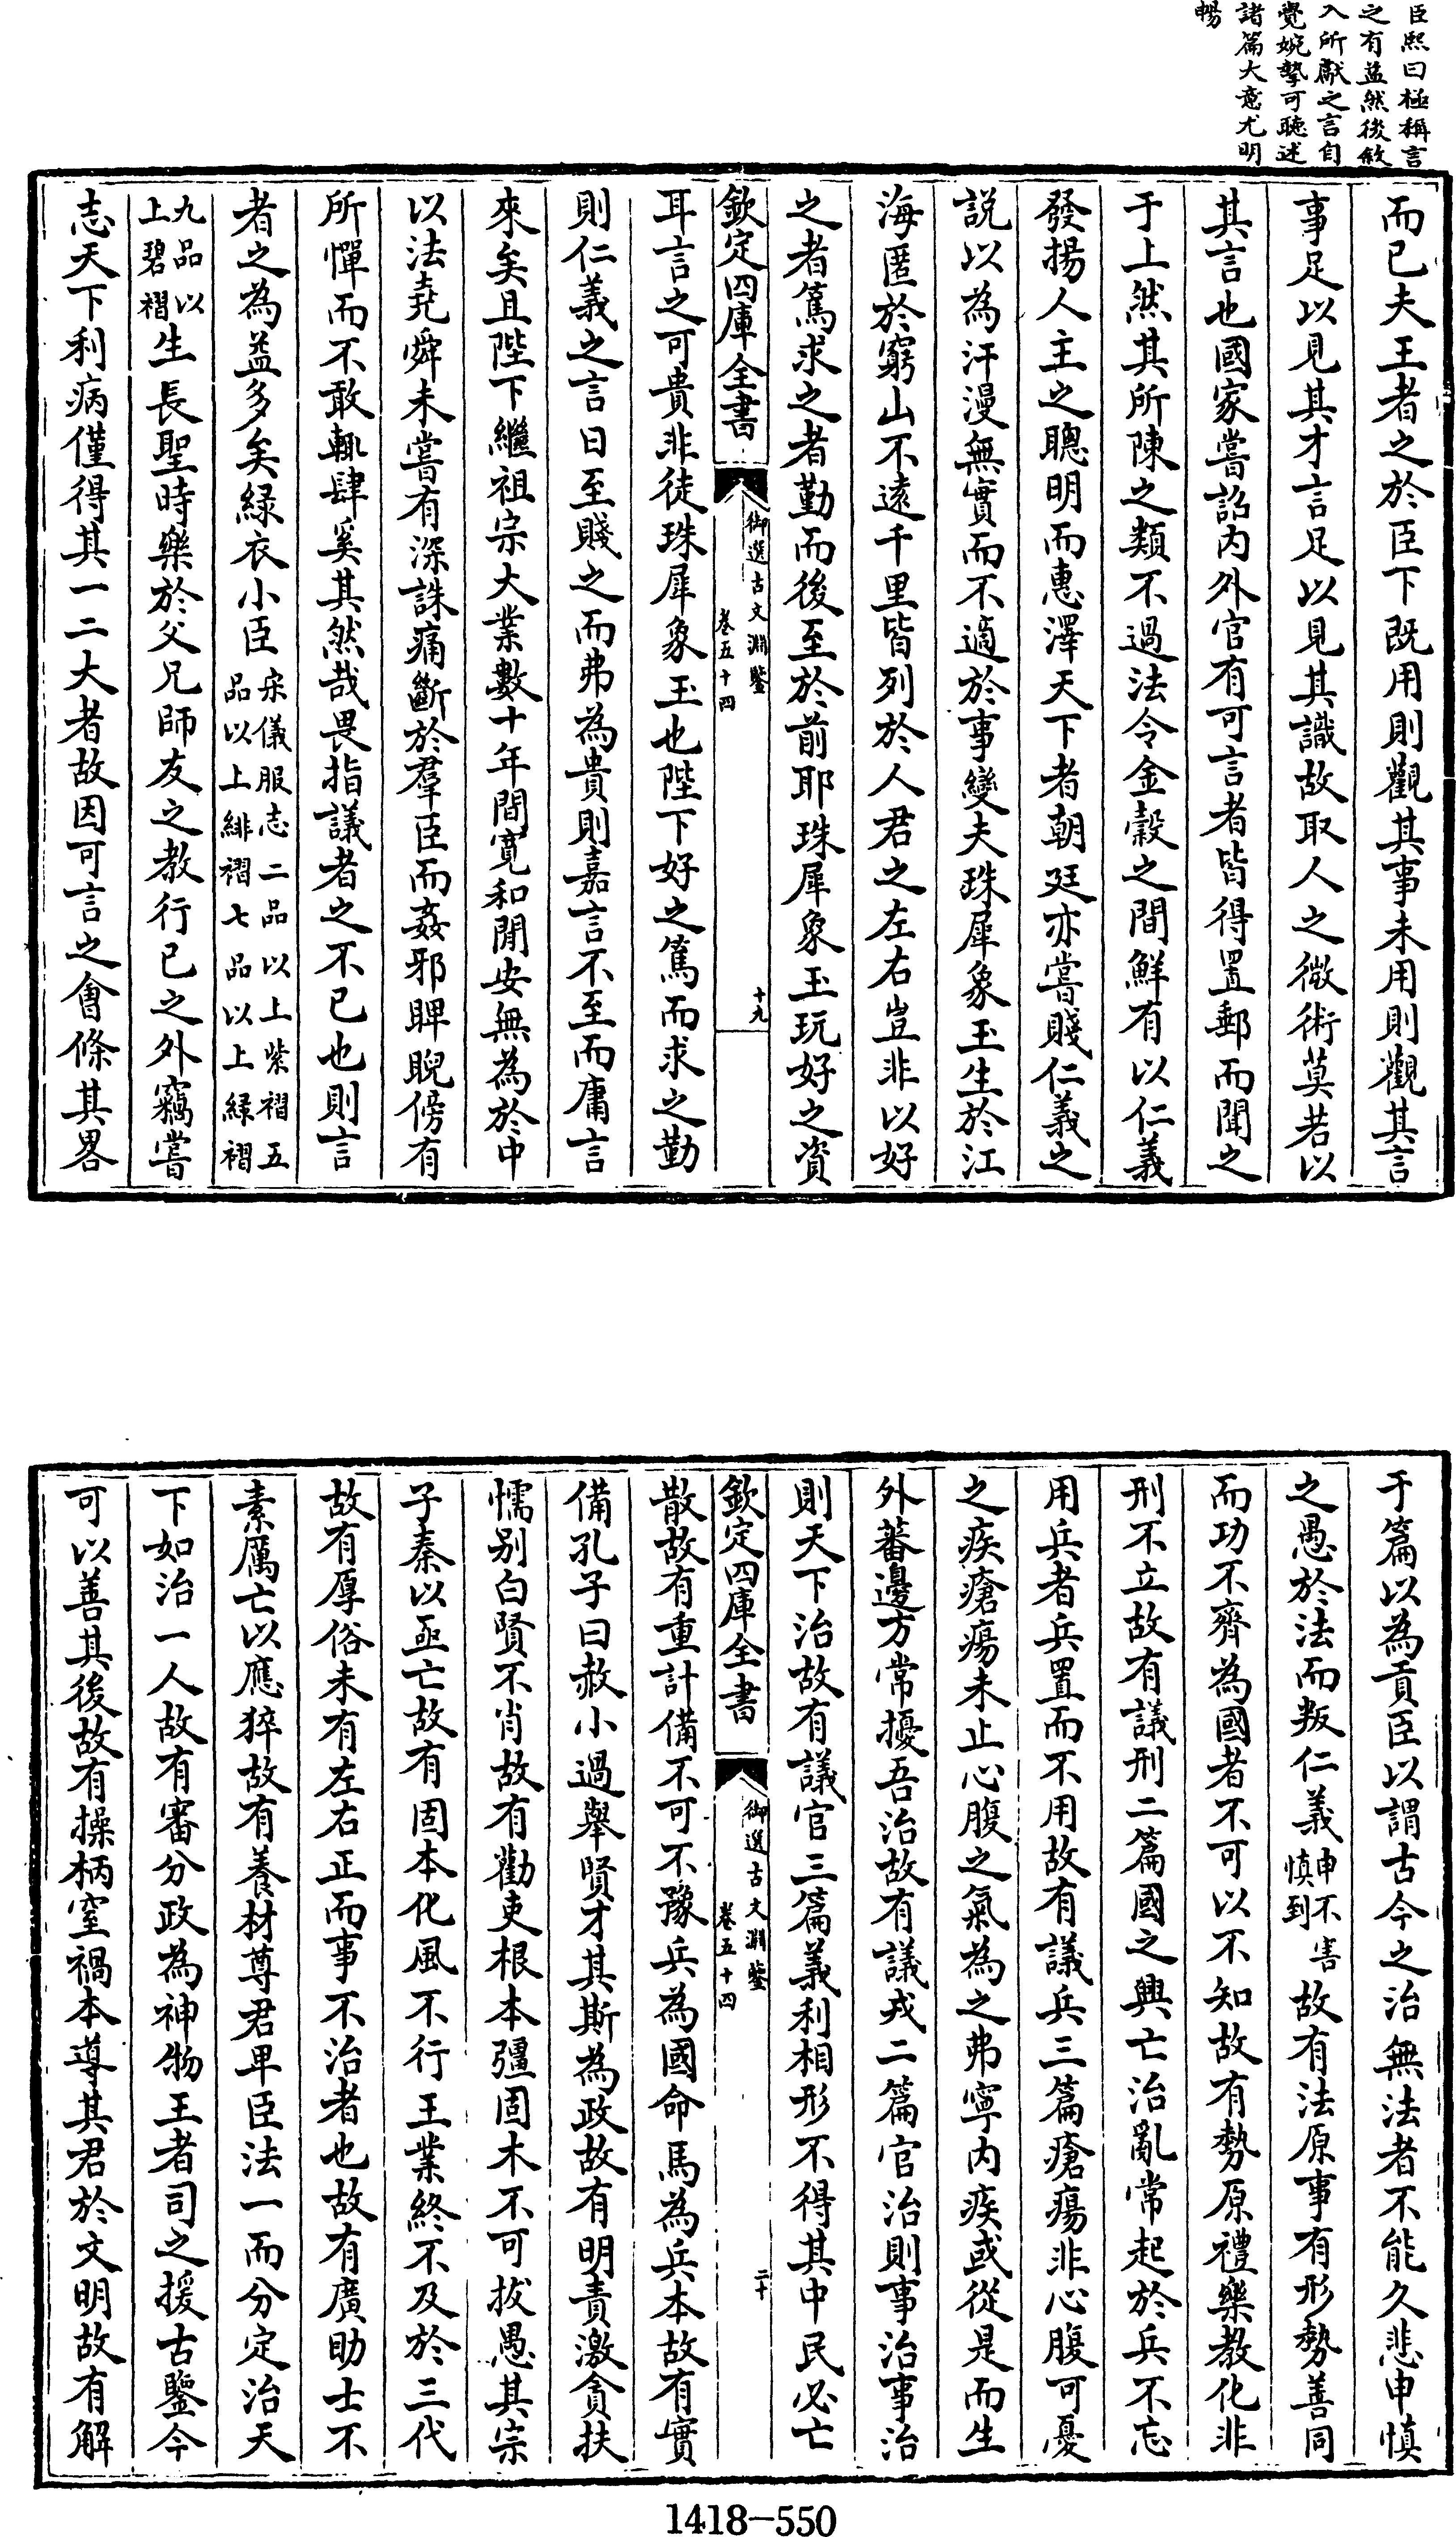 臣熙曰極稱言
之有益然後敘
入所獻之言自
覺婉摯可聽述
諸篇大意尤明
暢
而已夫王者之於臣下既用則觀其事未用則觀其言
事足以見其才言足以見其識故取人之微術莫若以
其言也國家嘗詔内外官有可言者皆得置郵而聞之
于上然其所陳之類不過法令金穀之間鮮有以仁義
發揚人主之聰明而惠澤天下者朝廷亦嘗賤仁義之
説以為汗漫無實而不適於事變夫珠犀象玉生於江
海匿於窮山不遠千里皆列於人君之左右豈非以好
之者篤求之者勤而後至於前耶珠犀象玉玩好之資
欽定四庫全書
御選古文淵鑒
卷五十四
十九
耳言之可貴非徒珠犀象玉也陛下好之篤而求之勤
則仁義之言日至賤之而弗為貴則嘉言不至而庸言
來矣且陛下繼祖宗大業數十年間寛和閒安無為於中
以法堯舜未嘗有深誅痛斷於羣臣而姦邪睥睨傍有
所憚而不敢輒肆奚其然哉畏指議者之不已也則言
者之為益多矣緑衣小臣宋儀服志二品以上紫褶五
品以上緋褶七品以上緑褶
九品以
上碧褶生長聖時樂於父兄師友之教行已之外竊嘗
志天下利病僅得其一二大者故因可言之會條其畧
于篇以為貢臣以謂古今之治無法者不能久悲申慎
之愚於法而叛仁義申不害
慎到故有法原事有形勢善同
而功不齊為國者不可以不知故有勢原禮樂教化非
刑不立故有議刑二篇國之興亡治亂常起於兵不忘
用兵者兵置而不用故有議兵三篇瘡瘍非心腹可憂
之疾瘡瘍未止心腹之氣為之弗寧内疾或從是而生
外蕃邊方常擾吾治故有議戎二篇官治則事治事治
則天下治故有議官三篇義利相形不得其中民必亡
欽定四庫全書
御選古文淵鑒
卷五十四
二十
散故有重計備不可不豫兵為國命馬為兵本故有實
備孔子曰赦小過舉賢才其斯為政故有明責激貪扶
懦别白賢不肖故有勸吏根本彊固木不可拔愚其宗
子秦以亟亡故有固本化風不行王業終不及於三代
故有厚俗未有左右正而事不治者也故有廣助士不
素厲亡以應猝故有養材尊君卑臣法一而分定治天
下如治一人故有審分政為神物王者司之援古鑒今
可以善其後故有操柄窒禍本導其君於文明故有解
1418-550